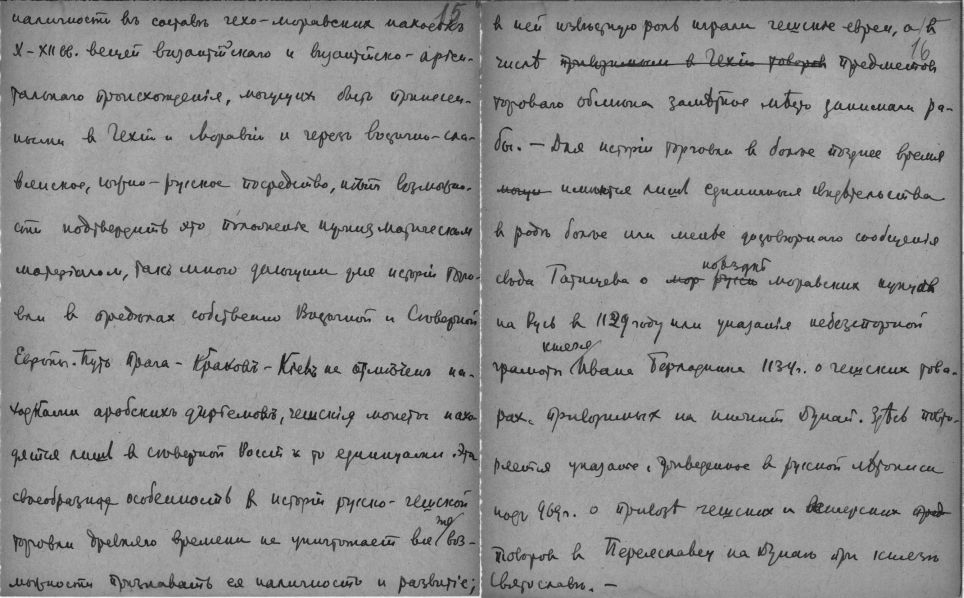 15
наличности въ составѣ чехо-моравскихъ находокъ
X-XII вв. вещей византiйскаго и византiйско-орiен-
тальнаго происхожденiя, могущихъ быть принесен-
ными в Чехiю и Моравiю и черезъ восточно-сла-
вянское, южно-русское посредство, нѣтъ возможно-
сти подтвердить это положенiе нумизматическим
матерiалом, такъ много дающим для исторiи торго-
вли в предѣлах собственно Восточной и Сѣверной
Европы. Путь Прага-Краковъ-Кiевъ не отмѣчен на-
ходками арабскихъ диргемовъ, чешскiя монеты нахо-
дятся лишь в сѣверной Россiи и то единицами. Эта
своеобразная особенность в исторiи русско-чешской
торговли древняго времени не уничтожает все же воз-
можности признавать ея наличность и развитiе;
16
в ней извѣстную роль играли чешскiе евреи, а в
числѣ привозимыхъ в Чехiю товаров предметов
торговаго обмѣна замѣтное мѣсто занимали ра-
бы. - Для исторiи торговли в болѣе позднее время
могут имѣются лишь единичныя свидѣтельства
в родѣ болѣе или менѣе достовѣрнаго сообщенiя
свода Татищева о моравских купцах
на Руси в 1129 году или указанiя небезспорной
грамоты князя Ивана Берладника 1134 г. о чешских това-
рах, привозимых на нижнiй Дунай. Здѣсь повто-
ряется указанiе, приведенное в русской лѣтописи
подъ 969 г. о привозѣ чешских и венгерских
товаров в Переяславец на Дунаѣ при князѣ
Святославѣ. -